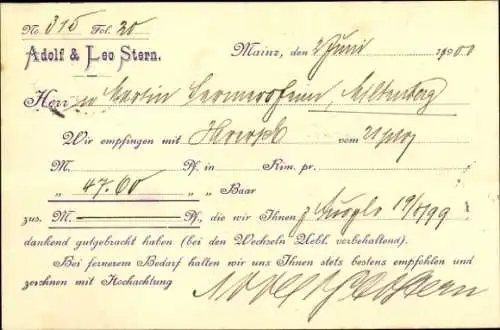 No. 315 Fol. 20
Adolf & Leo Stern.
Mainz, den 2 Juni 1900
Herrn Martin, Miltenberg
Wir empfingen mit vom
M. Pf. in Rim. pr.
„ 47.60 „ „ Baar
zus. M. Pf., die wir Ihnen 19/8 99
dankend gutgebracht haben (bei den Wechseln Uebl. vorbehaltend).
Bei fernerem Bedarf halten wir uns Ihnen stets bestens empfohlen und
zeichnen mit Hochachtung